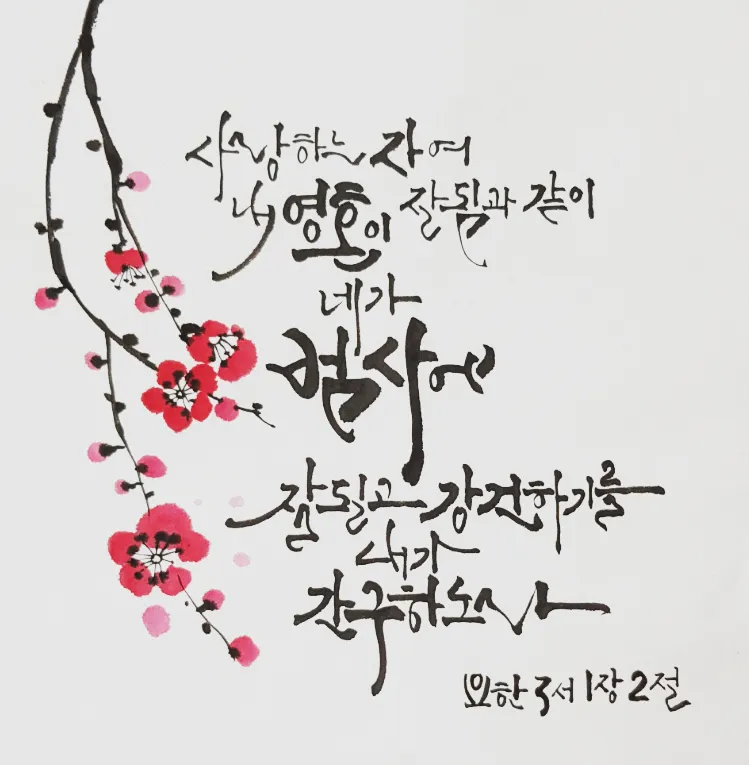 사랑하는 자여
내 영혼이 잘됨과 같이
네가
범사에
잘되고 강건하기를
내가
간구하노라
요한 3서 1장 2절